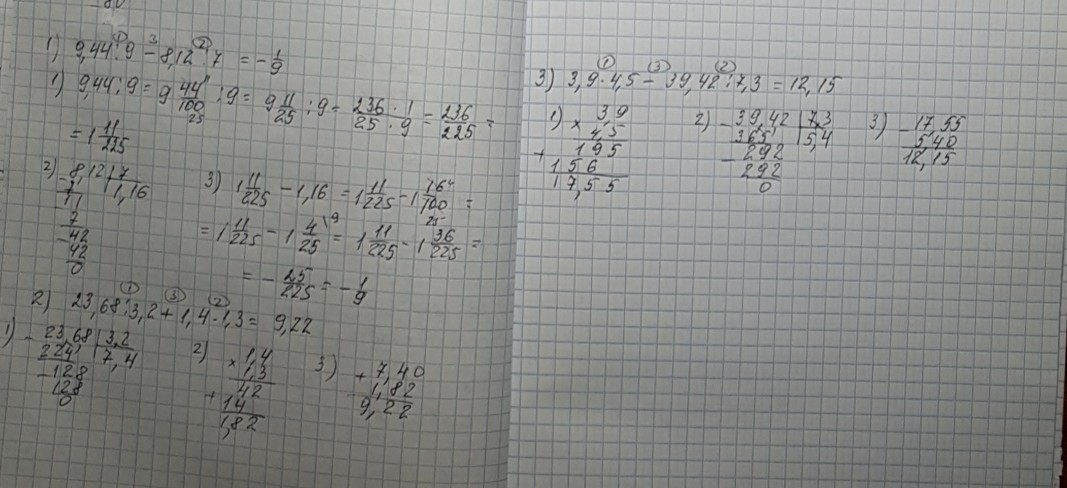 80
1) 9,44 : 9 - 8,12 : 7 = - 1/9
1) 9,44 : 9 = 9 44/100 : 9 = 9 11/25 : 9 = 236/25 · 1/9 = 236/225 =
= 1 11/225
2) 8,12 | 7
7 | 1,16
11
7
42
42
0
3) 1 11/225 - 1,16 = 1 11/225 - 1 16/100 =
= 1 11/225 - 1 4/25 = 1 11/225 - 1 36/225 =
= - 25/225 = - 1/9
2) 23,68 : 3,2 + 1,4 · 1,3 = 9,22
1) 23,68 | 3,2
224 | 7,4
128
128
0
2) 1,4
× 1,3
42
+ 14
1,82
3) + 7,40
1,82
9,22
3) 3,9 · 4,5 - 39,42 : 7,3 = 12,15
1) 3,9
× 4,5
195
+ 156
17,55
2) 39,42 | 7,3
365 | 5,4
292
292
0
3) - 17,55
5,40
12,15